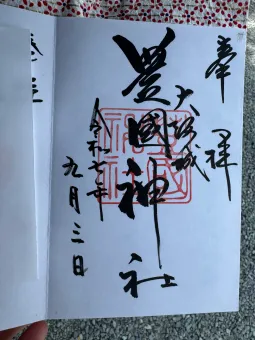 奉拝
大坂城
豊國神社
令和七年
九月三日